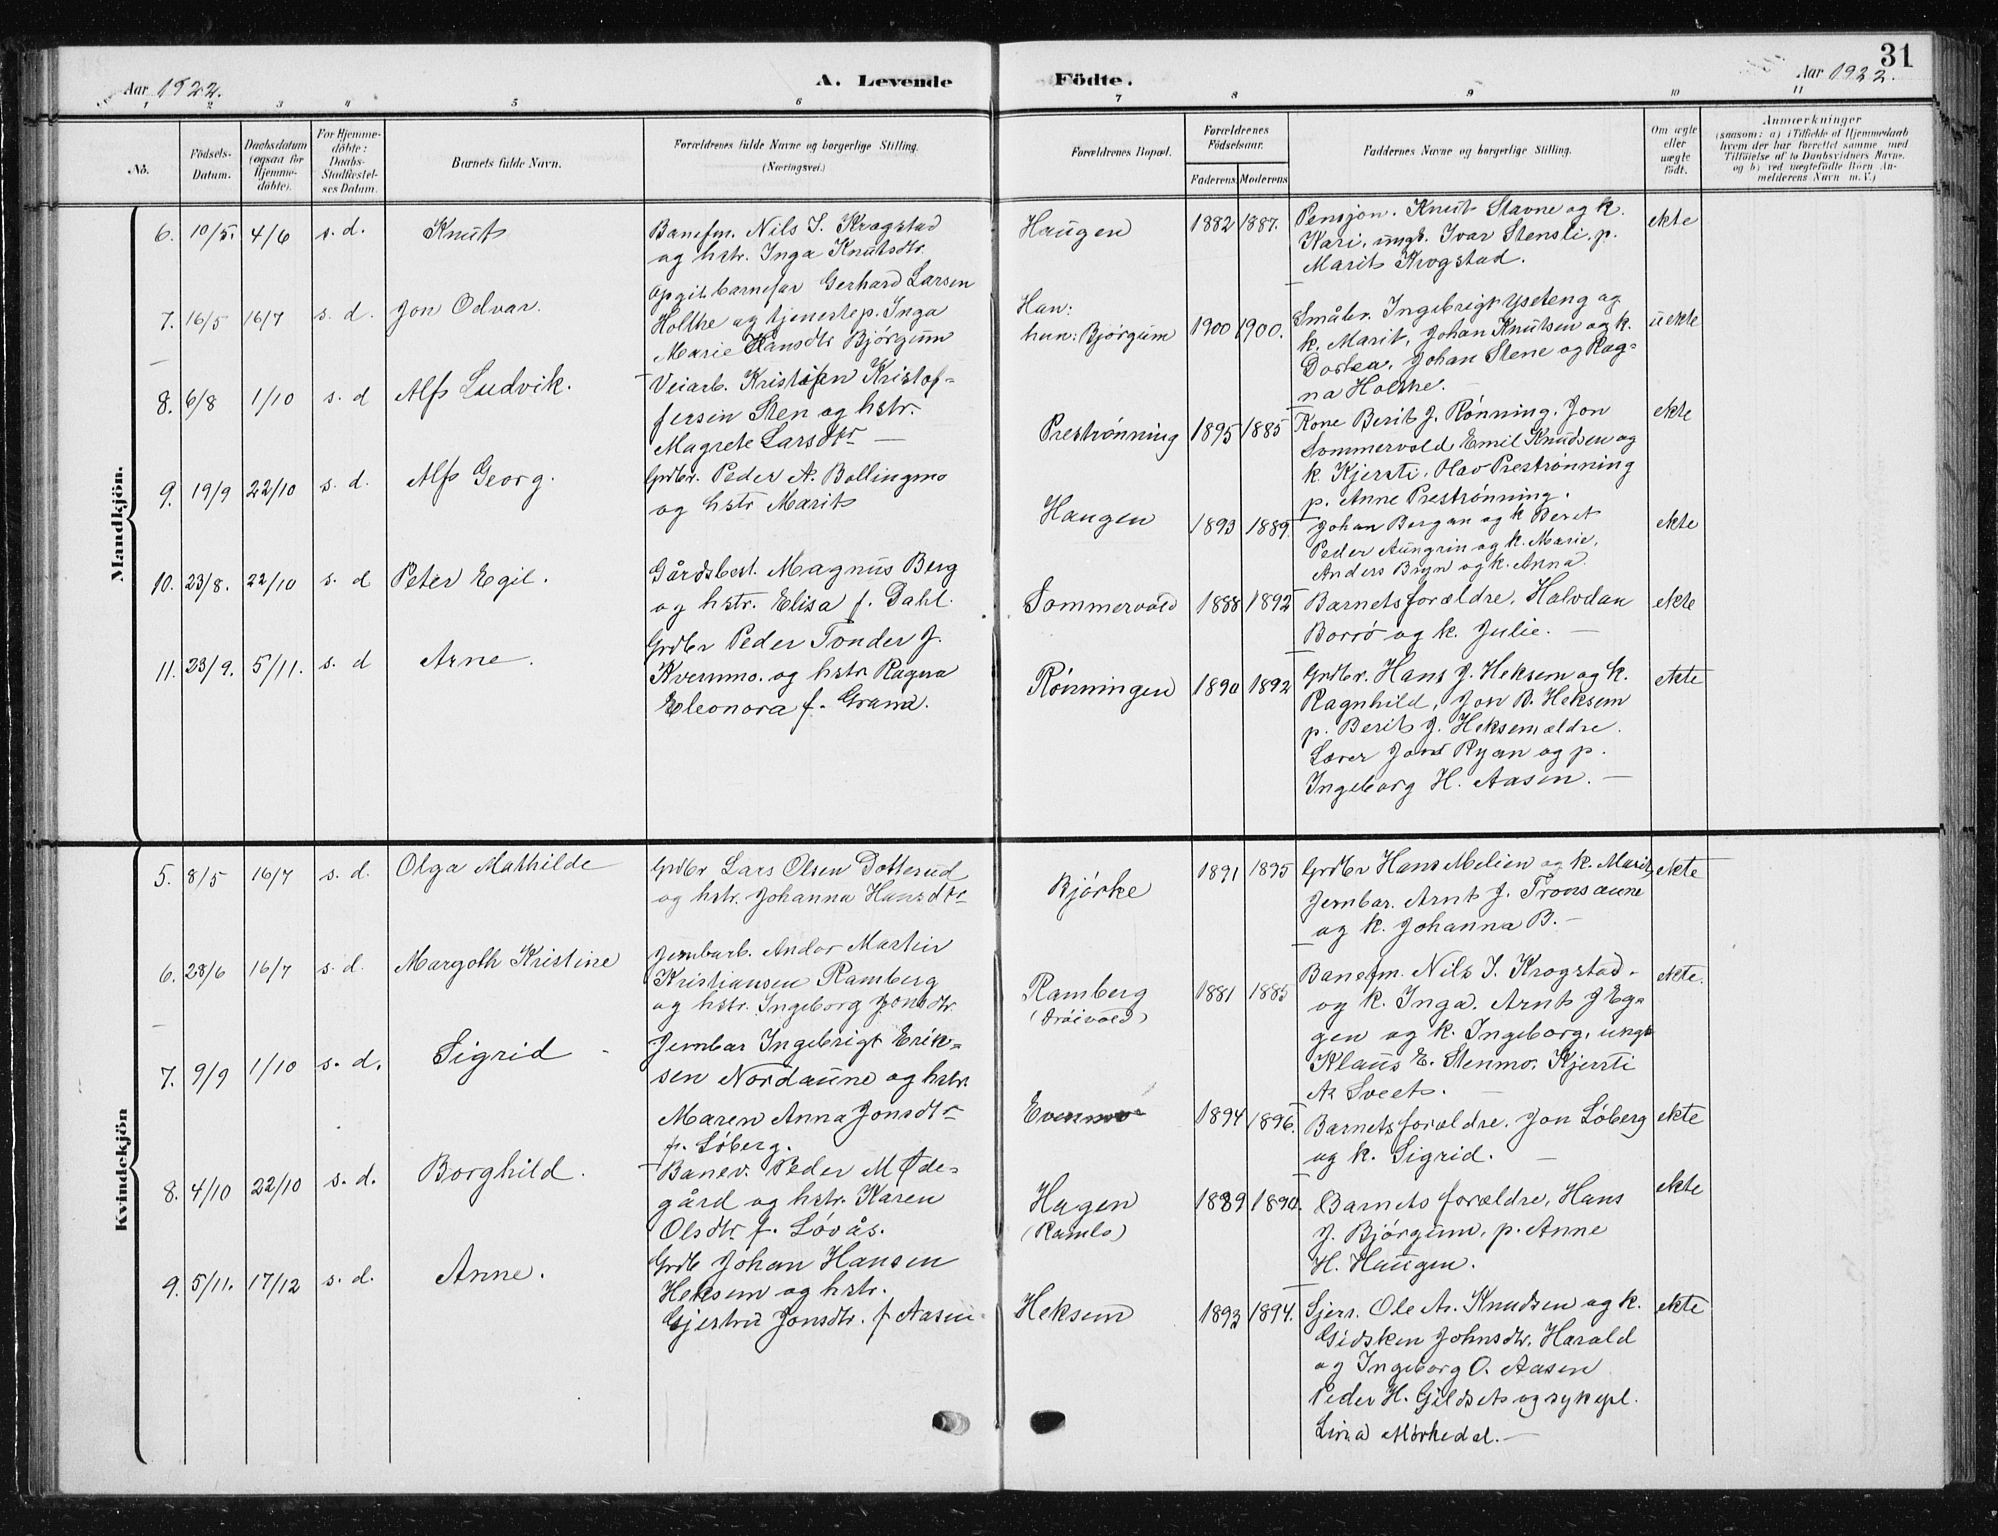 31
Aar 1922.
A. Levende
Födte.
Aar 1922.
1 2 3 4 5 6 7 8 9 10 11
No.
Födsels-
Datum.
Daabsdatum
(ogsaa for
Hjemme-
döbte).
For Hjemme-
döbte:
Daabs-
Stadfæstel-
ses Datum.
Barnets fulde Navn.
Forældrenes fulde Navne og borgerlige Stilling.
(Næringsvei.)
Forældrenes Bopæl.
Forældrenes
Födselsaar.
Faderens. Moderens.
Faddernes Navne og borgerlige Stilling.
Om ægte
eller
uægte
födt.
Anmærkninger
(saasom: a) i Tilfælde af Hjemmedaab
hvem der har forrettet samme med
Tilföielse af to Daabsvidners Navne.
og b) ved uægtefödte Börn An-
melderens Navn m. V.)
Mandkjön.
6. 10/5. 4/6 s. d. Knut
Banefm. Nils J. Krogstad
og hstr. Inga Knutsdtr.
Haugen 1882 1887.
Pensjon. Knut Stavne og k.
Kari, ungk. Ivar Stensli, p.
Marit Krogstad.
ekte
7. 16/5 16/7 s. d. Jon Odvar.
Opgit barnefar Gerhard Larsen
Holthe og tjenestep. Inga
Marie Hansdtr Bjørgum
Han:
hun: Bjørgum 1900 1900.
Småbr. Ingebrigt Yseteng og
k. Marit, Johan Knutsen og k.
Dortea, Johan Stene og Rag=
na Holthe.
uekte
8. 6/8 1/10 s. d Alf Ludvik.
Veiarb. Kristian Kristof=
fersen Sten og hstr.
Magrete Larsdtr
Prestrønning 1895 1885
Kone Berit J. Rønning, Jon
Sommervold, Emil Knudsen og
k. Kjersti, Olav Prestrønning
p. Anne Prestrønning.
ekte
9. 19/9 22/10 s. d. Alf Georg.
Grdbr. Peder A. Bollingmo
og hstr Marit
Haugen 1893 1889.
Johan Bergan og k Beret
Peder Aungrin og k. Marie,
Anders Bryn og k. Anna.
ekte
10. 23/8. 22/10 s. d Peter Egil.
Gårdsbest. Magnus Berg
og hstr. Elisa f. Dahl.
Sommervold 1888 1892
Barnets forældre, Halvdan
Borrø og k. Julie.
ekte
11. 23/9. 5/11. s. d Arne.
Grdbr Peder Tonder J.
Kvernmo og hstr Ragna
Eleonora f. Grana.
Rønningen 1890 1892
Grdbr. Hans J. Heksem og k.
Ragnhild, Jon B. Heksem
p. Berit J. Heksem ældre.
Lærer Jons Ryan og p.
Ingeborg H. Aasen.
ekte
Kvindekjön
5. 8/5 16/7 s. d. Olga Mathilde
Grdbr Lars Olsen Dotterud
og hstr. Johanna Hansdtr
Bjørke 1891 1895
Grdbr Hans Melien og k. Marit,
Jernbar. Arnt J. Tronsaune
og k. Johanna B.
ekte
6. 28/6 16/7 s. d. Margoth Kristine
Jernbarb. Andor Martin
Kristiansen Ramberg
og hstr. Ingeborg Jonsdtr.
Ramberg
(Drøivold) 1881 1885
Banefm. Nils J. Krogstad
og k. Inga. Arnt J Eg=
gen og k. Ingeborg, ungk
Klaus E. Stenmo. Kjersti
A. Sveet.
ekte.
7. 9/9 1/10 s. d. Sigrid
Jernbar Ingebrigt Erik=
sen Nordaune og hstr.
Maren Anna Jonsdtr
f. Løberg.
Evenmo 1894 1896.
Barnets forældre. Jon Løberg
og k. Sigrid.
ekte
8. 4/10 22/10 s. d. Borghild.
Banev. Peder M Øde=
gård og hstr. Karen
Olsdtr. f. Løvås.
Hagen
(Ramlo) 1889 1890.
Barnets forældre, Hans
J. Bjørgum, p. Anne
H. Haugen.
ekte
9. 5/11. 17/12 s. d. Anne.
Grdb Johan Hansen
Heksem og hstr.
Gjertru Jonsdtr. f Aasen
Heksem 1893 1894.
Sjers. Ole Ar. Knudsen og k.
Gidsken Johnsdtr. Harald
og Ingeborg O. Aasen
Peder H. Gildset og sykepl.
Lina Mørkedal.
ekte